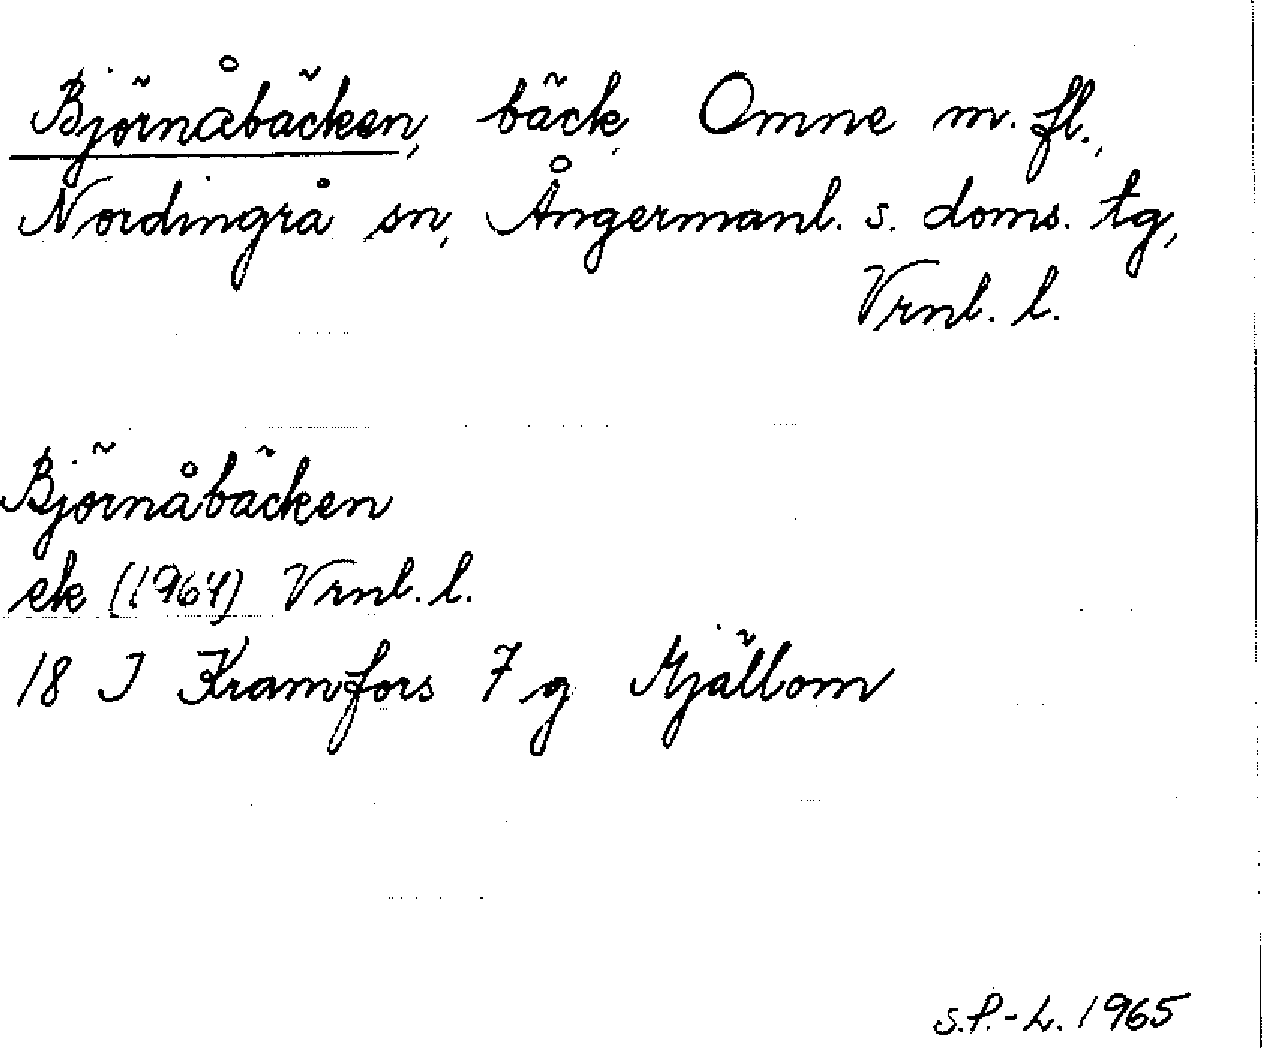 Björnåbäcken, bäck, Omne m. fl.,
Nordingrå sn, Ångermanl. s. doms. tg,
Vrnl. l.
Björnåbäcken
ek (1964) Vrnl. l.
18 J Kramfors 7 g Mjällom
S.P.-L. 1965